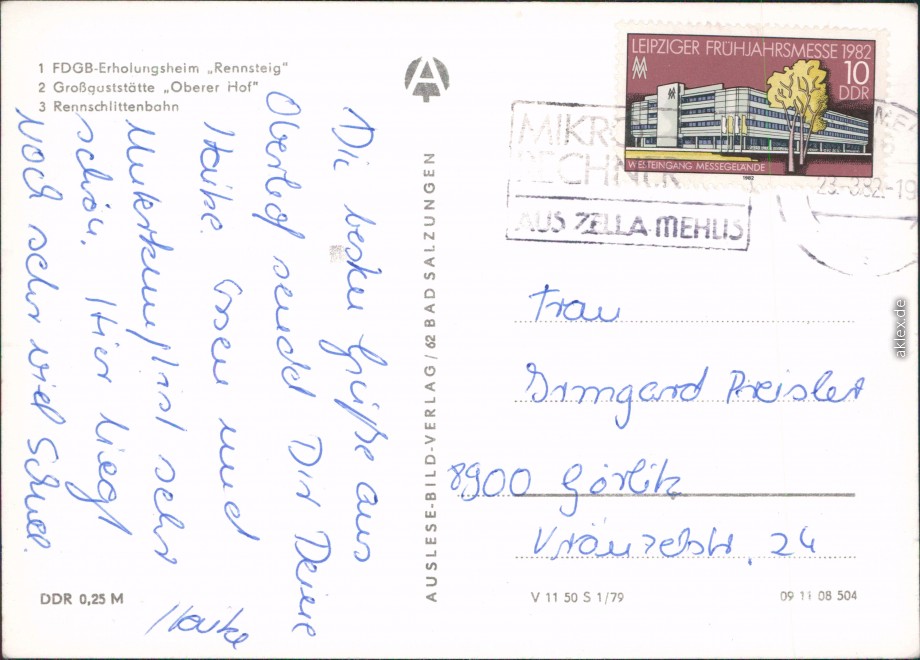 1 FDGB-Erholungsheim „Rennsteig"
2 Großgaststätte „Oberer Hof"
3 Rennschlittenbahn
Die besten Grüße aus
Oberhof sendet Dir Deine
Haike. Essen und
Unterkunft ist sehr
schön. Hier liegt
noch sehr viel Schnee.
Haike
DDR 0,25 M
AUSLESE-BILD-VERLAG/62 BAD SALZUNGEN
LEIPZIGER FRÜHJAHRSMESSE 1982
10
DDR
WESTEINGANG MESSEGELÄNDE
1982
MIKRO
RECHNER
AUS ZELLA-MEHLIS
Frau
Irmgard Preisler
8900 Görlitz
Kränzelstr. 24
V 11 50 S 1/79
09 11 08 504
aklex.de